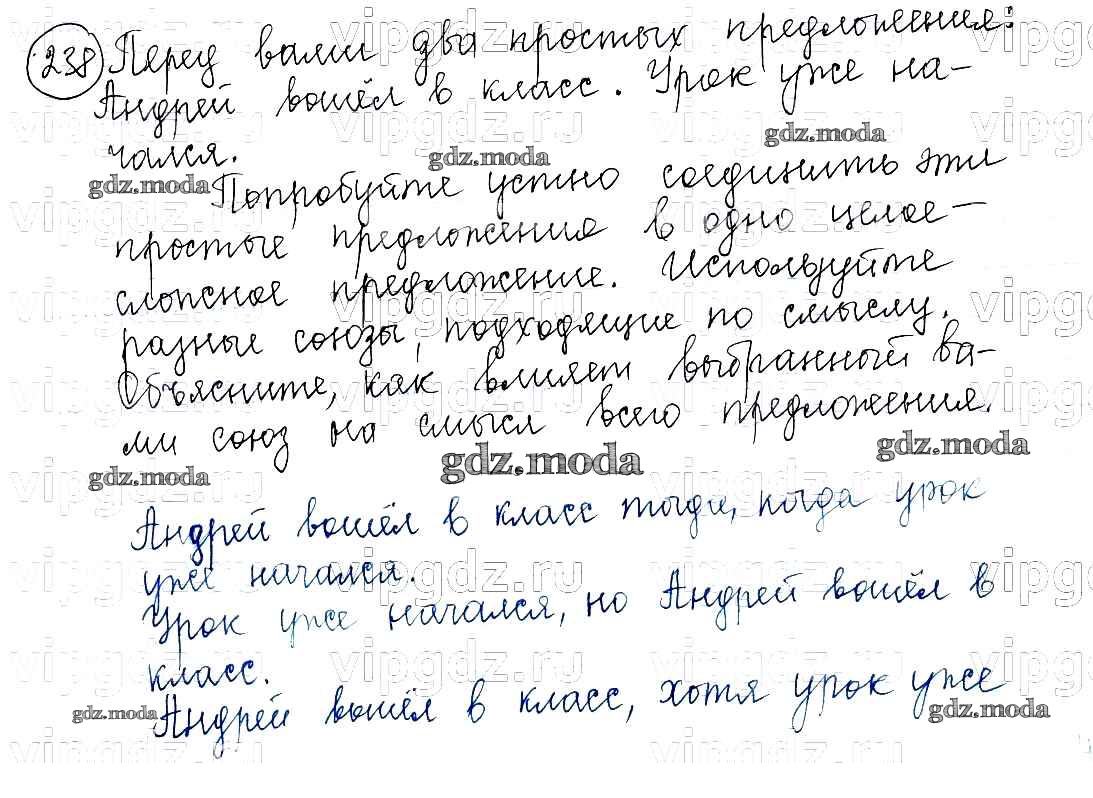 238 Перед вами два простых предложения:
Андрей вошёл в класс. Урок уже на-
чался.
Попробуйте устно соединить эти
простые предложения в одно целое -
сложное предложение. Используйте
разные союзы, подходящие по смыслу.
Объясните, как влияет выбранный ва-
ми союз на смысл всего предложения.
Андрей вошёл в класс тогда, когда урок
уже начался.
Урок уже начался, но Андрей вошёл в
класс.
Андрей вошёл в класс, хотя урок уже